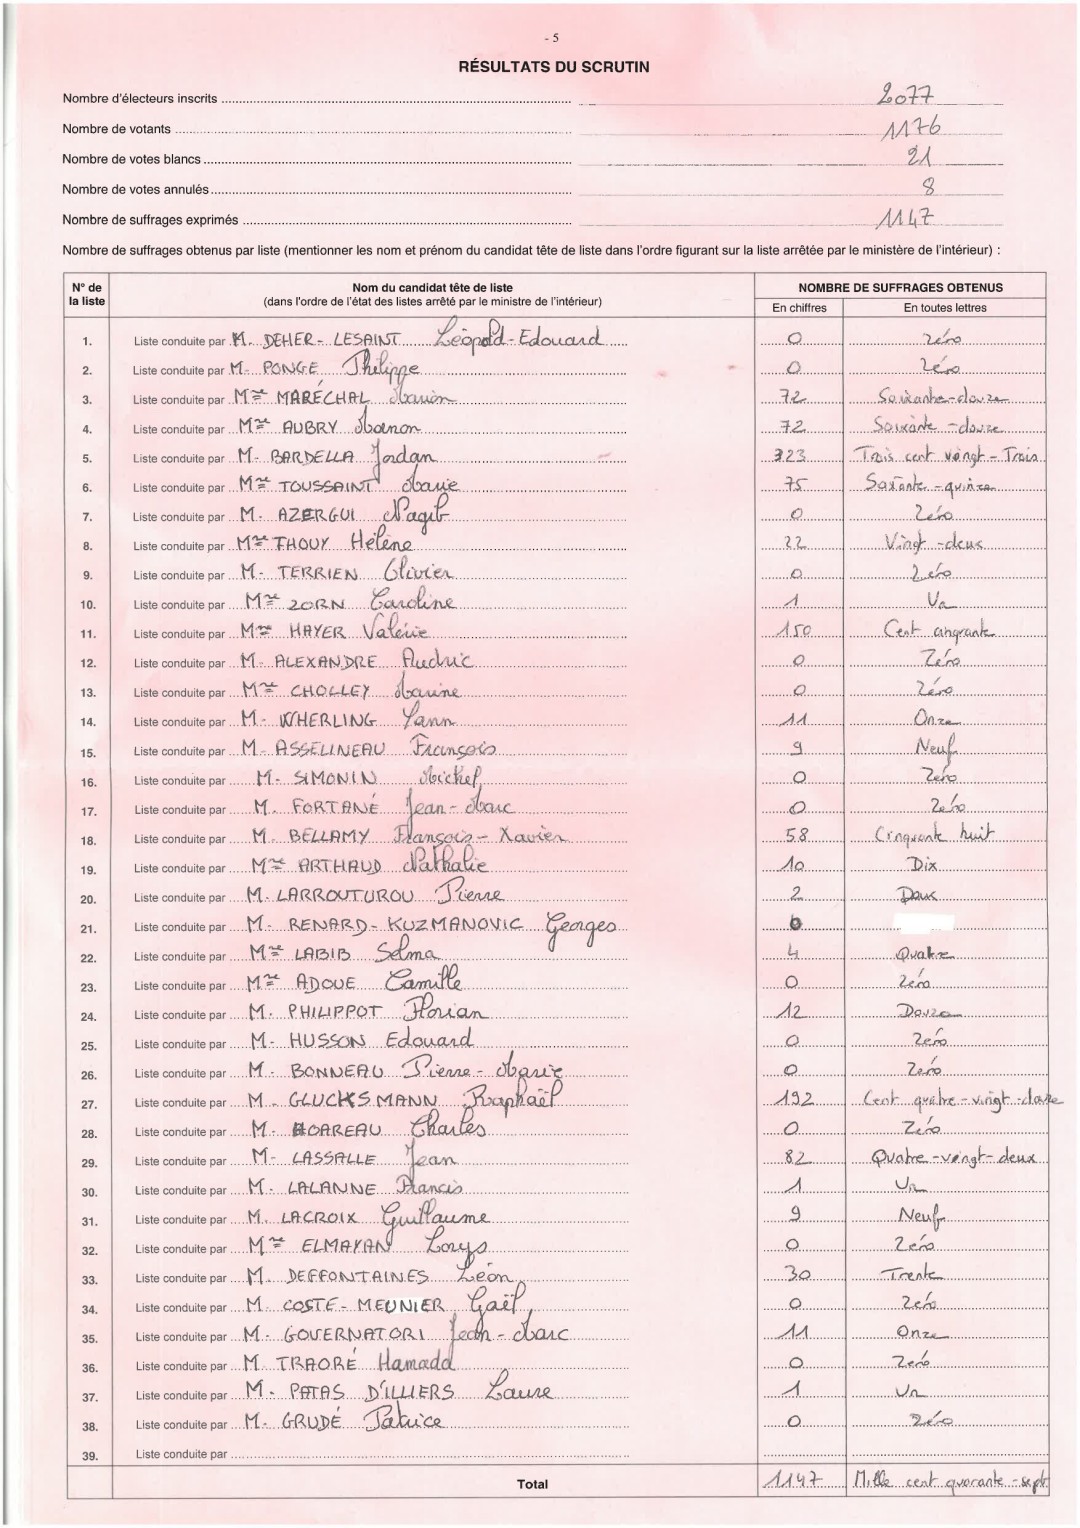 - 5
RÉSULTATS DU SCRUTIN
Nombre d'électeurs inscrits 2077
Nombre de votants 1176
Nombre de votes blancs 21
Nombre de votes annulés 8
Nombre de suffrages exprimés 1147
Nombre de suffrages obtenus par liste (mentionner les nom et prénom du candidat tête de liste dans l'ordre figurant sur la liste arrêtée par le ministère de l'intérieur) :
N° de la liste | Nom du candidat tête de liste (dans l'ordre de l'état des listes arrêté par le ministre de l'intérieur) | NOMBRE DE SUFFRAGES OBTENUS
En chiffres | En toutes lettres
1. Liste conduite par M. DEHER-LESAINT Léopold-Edouard 0 Zéro
2. Liste conduite par M. PONGE Philippe 0 Zéro
3. Liste conduite par Mme MARÉCHAL Marion 72 Soixante-douze
4. Liste conduite par Mme AUBRY Manon 72 Soixante-douze
5. Liste conduite par M. BARDELLA Jordan 323 Trois cent vingt-Trois
6. Liste conduite par Mme TOUSSAINT Marie 75 Soixante-quinze
7. Liste conduite par M. AZERGUI Nagib 0 Zéro
8. Liste conduite par Mme THOUY Hélène 22 Vingt-deux
9. Liste conduite par M. TERRIEN Olivier 0 Zéro
10. Liste conduite par Mme ZORN Caroline 1 Un
11. Liste conduite par Mme HAYER Valérie 150 Cent cinquante
12. Liste conduite par M. ALEXANDRE Audric 0 Zéro
13. Liste conduite par Mme CHOLLEY Marine 0 Zéro
14. Liste conduite par M. WHERLING Yann 11 Onze
15. Liste conduite par M. ASSELINEAU François 9 Neuf
16. Liste conduite par M. SIMONIN Michel 0 Zéro
17. Liste conduite par M. FORTANÉ Jean-Marc 0 Zéro
18. Liste conduite par M. BELLAMY François-Xavier 58 Cinquante huit
19. Liste conduite par Mme ARTHAUD Nathalie 10 Dix
20. Liste conduite par M. LARROUTUROU Pierre 2 Deux
21. Liste conduite par M. RENARD-KUZMANOVIC Georges
22. Liste conduite par Mme LABIB Selma 4 Quatre
23. Liste conduite par Mme ADOUE Camille 0 Zéro
24. Liste conduite par M. PHILIPPOT Florian 12 Douze
25. Liste conduite par M. HUSSON Edouard 0 Zéro
26. Liste conduite par M. BONNEAU Pierre-Marie 0 Zéro
27. Liste conduite par M. GLUCKSMANN Raphaël 192 Cent quatre-vingt-douze
28. Liste conduite par M. HOAREAU Charles 0 Zéro
29. Liste conduite par M. LASSALLE Jean 82 Quatre-vingt-deux
30. Liste conduite par M. LALANNE Francis 1 Un
31. Liste conduite par M. LACROIX Guillaume 9 Neuf
32. Liste conduite par Mme ELMAYAN Lorys 0 Zéro
33. Liste conduite par M. DEFFONTAINES Léon 30 Trente
34. Liste conduite par M. COSTE-MEUNIER Gaël 0 Zéro
35. Liste conduite par M. GOVERNATORI Jean-Marc 11 Onze
36. Liste conduite par M. TRAORÉ Hamada 0 Zéro
37. Liste conduite par M. PATAS D'ILLIERS Laure 1 Un
38. Liste conduite par M. GRUDÉ Patrice 0 Zéro
39. Liste conduite par
Total 1147 Mille cent quarante-sept